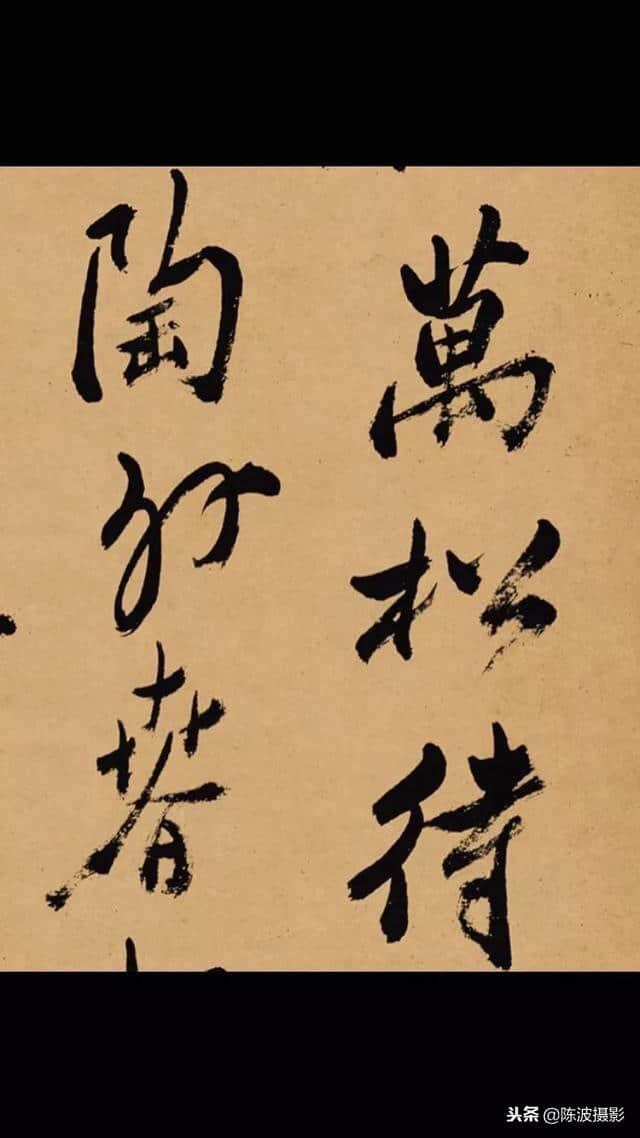 萬松待
陶好
头条 @陈波摄影